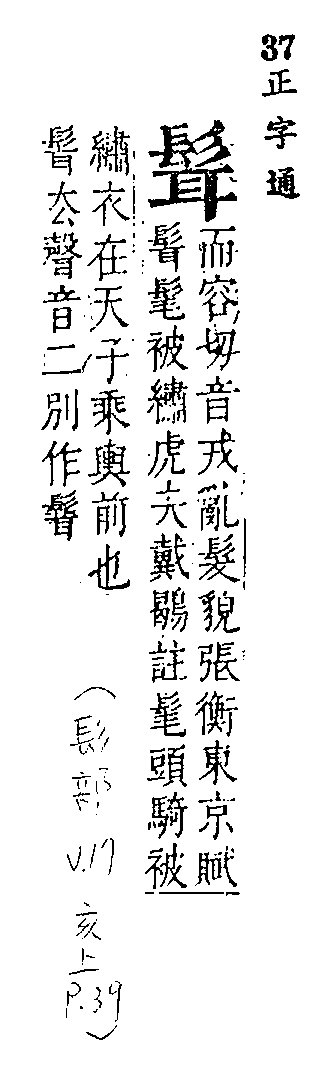 37
正字通
髶
而容切音戎亂髮貌張衡東京賦
髶髦被繡虎夫戴鶡註髦頭騎被
繡衣在天子乘輿前也
髶厺聲音二別作
(髟部 V.17 亥上 P.39)